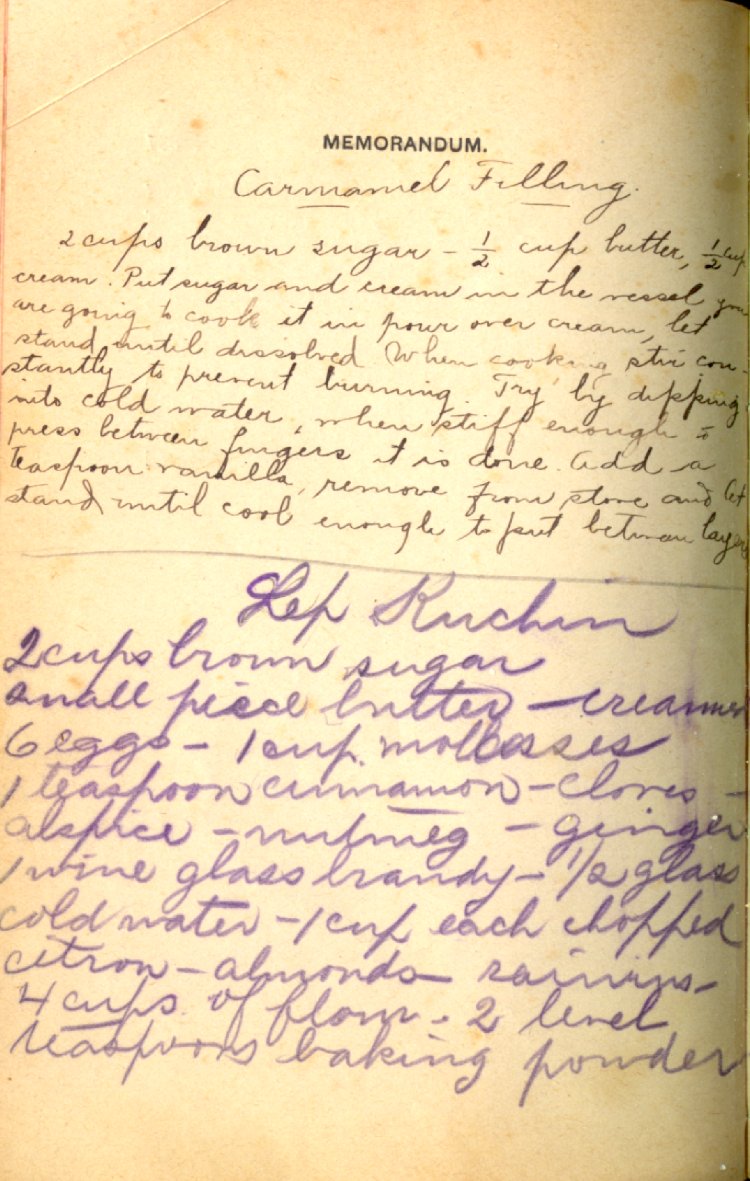 MEMORANDUM.
Carmamel Filling.
2 cups brown sugar - 1/2 cup butter, 1/2 cup
cream. Put sugar and cream in the vessel you
are going to cook it in pour over cream, let
stand until dissolved When cooking stir con-
stantly to prevent burning. Try by dipping
into cold water, when stiff enough to
press between fingers it is done. Add a
teaspoon vanilla, remove from stove and let
stand until cool enough to put between layers
Lep Kuchin
2 cups brown sugar
small piece butter - creamed
6 eggs - 1 cup molasses
1 teaspoon cinnamon - cloves -
alspice - nutmeg - ginger
1 wine glass brandy - 1/2 glass
cold water - 1 cup each chopped
citron - almonds - rainins -
4 cups of flour - 2 level
teaspoons baking powder